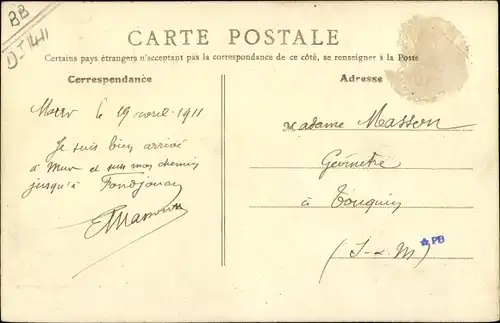 BB
D-I 441
CARTE POSTALE
Certains pays étrangers n'acceptant pas la correspondance de ce côté, se renseigner à la Poste
Correspondance
Adresse
le 19 avril 1911
Je suis bien arrivé
à Mur et suis mon chemin
jusqu'à
Masson
Madame Masson
Géomètre
à Touquin
(S-&-M)
PB